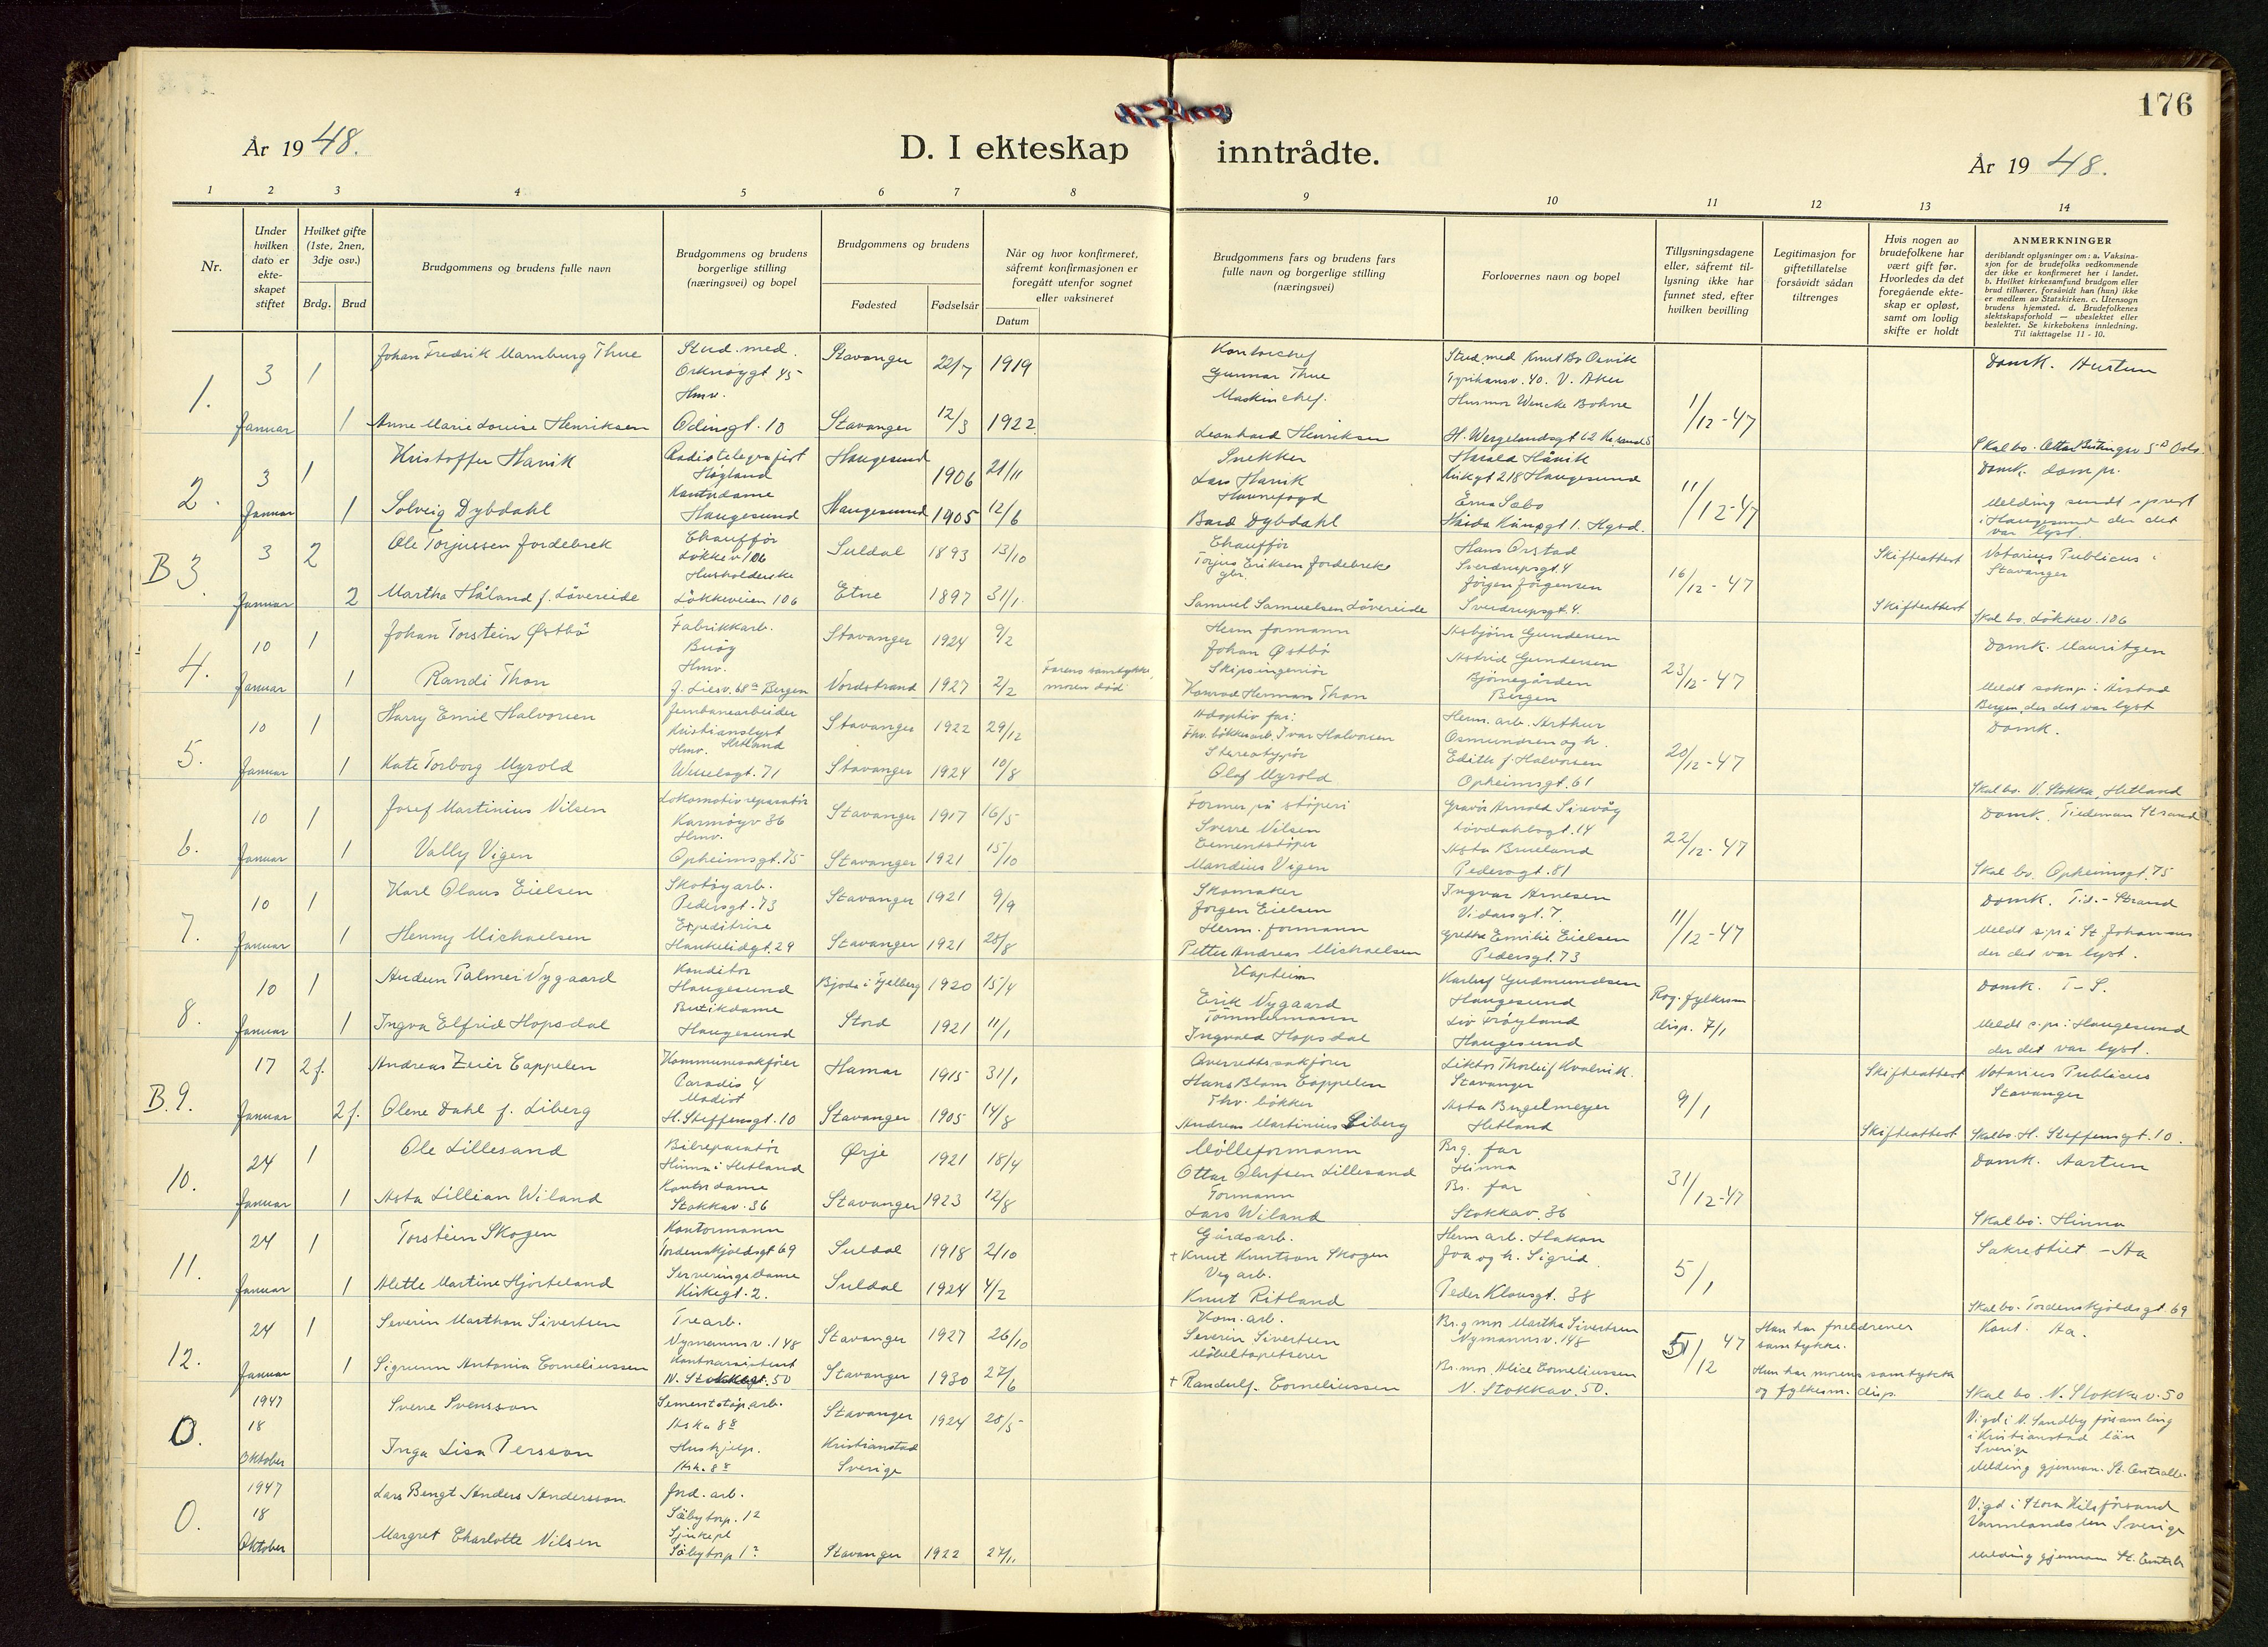 176
År 1948.
D. I ekteskap inntrådte.
År 1948.
1 2 3 4 5 6 7 8 9 10 11 12 13 14
Nr.
Under hvilken dato er ekte-skapet stiftet
Hvilket gifte (1ste, 2nen, 3dje osv.)
Brdg. Brud
Brudgommens og brudens fulle navn
Brudgommens og brudens borgerlige stilling (næringsvei) og bopel
Brudgommens og brudens
Fødested Fødselsår
Når og hvor konfirmeret, såfremt konfirmasjonen er foregått utenfor sognet eller vaksineret
Datum
Brudgommens fars og brudens fars fulle navn og borgerlige stilling (næringsvei)
Forlovernes navn og bopel
Tillysningsdagene eller, såfremt til-lysning ikke har funnet sted, efter hvilken bevilling
Legitimasjon for giftetillatelse forsåvidt sådan tiltrenges
Hvis nogen av brudefolkene har vært gift før. Hvorledes da det foregående ekte-skap er opløst, samt om lovlig skifte er holdt
ANMERKNINGER
deriblandt oplysninger om: a. Vaksina-sjon for de brudefolks vedkommende der ikke er konfirmeret her i landet. b. Hvilket kirkesamfund brudgom eller brud tilhører, forsåvidt han (hun) ikke er medlem av Statskirken. c. Utensogn brudens hjemsted. d. Brudefolkenes slektskapsforhold — ubeslektet eller beslektet. Se kirkebokens innledning. Til iakttagelse 11 - 10.
1. 3 Januar 1 Johan Fredrik Mamburg Thue Stud. med. Orknøygt 45 Stavanger 22/7 1919 Kontorchef Gunnar Thue Stud. med Knut Bo Osvik Tyrihansv. 40. V. Aker 11/12-47 Domk.
Hmv.
1 Anne Marie Louise Henriksen Odinsgt. 10 Stavanger 12/3 1922 Maskinchef. Leonhard Henriksen Husmor Wencke Bohne H. Wergelandsgt 62 Kr.sand S
2. 3 Januar 1 Kristoffer Havik Radiotelegrafist Høgland Haugesund 1906 21/11 Snekker Lars Havik Harald Håvik Kirkgt 218 Haugesund 11/12-47 Domk. dompr.
1 Solveig Dybdahl Kontordame Haugesund Haugesund 1905 12/6 Havnefogd Bård Dybdahl Erna Sæbø Hgsd. Melding sendt sprest i Haugesund der det var lyst.
B 3. 3 Januar 2 Ole Torjussen Jordebrek Chauffør Løkkev. 106 Suldal 1893 13/10 Chauffør Torjus Eriksen Jordebrekk gbr. Hans Orstad Sverdrupsgt. 4 16/12-47 Skifteattest Notarius Publicus i Stavanger
2 Martha Håland f. Løvereide Husholderske Løkkeveien 106 Etne 1897 31/1 Samuel Samuelsen Løvereide Jørgen Jørgensen Sverdrupsgt. 4. Skifteattest Skal bo. Løkkev. 106
4. 10 Januar 1 Johan Torstein Østbø Fabrikkarb. Buøy Stavanger 1924 9/2 Herm formann Johan Østbø Asbjørn Gundersen Astrid Gundersen 23/12-47 Domk. Mauritzen
1 Randi Thon Hmv. J. Liesv. 68a Bergen Nordstrand 1927 2/2 Farens samtykke, moren død Skipsingeniør Konrad Herman Thon Bjørnegården Bergen Meldt sokspr i Årstad Bergen, der det var lyst
5. 10 Januar 1 Harry Emil Halvorsen Jernbanearbeider Kristianslyst Hetland Stavanger 1922 29/12 Adoptiv far: Fhv. bøkkerarb. Ivar Halvorsen Herm. arb. Arthur Osmundsen og h. 20/12-47 Domk.
1 Kate Torborg Myrold Hmv. Wesselsgt. 71 Stavanger 1924 10/8 Stereotypør Olaf Myrold Edith f. Halvorsen Opheimsgt. 61 Skal bo. V. Stokka, Hetland
6. 10 Januar 1 Josef Martinius Nilsen Lokomotivreparatør Karmøyv 36 Stavanger 1917 16/5 Former på støperi Sverre Nilsen Gravør Arnold Sirevåg Løvdahlsgt. 14 22/12-47 Domk. Tiedeman Strand
1 Vally Vigen Hmv. Opheimsgt. 75 Stavanger 1921 15/10 Cementstøper Mandius Vigen Asta Brueland Pedersgt. 81 Skal bo. Opheimsgt. 75
7. 10 Januar 1 Karl Olaus Eielsen Skotøyarb. Pedersgt. 73 Stavanger 1921 9/9 Skomaker Jørgen Eielsen Ingvar Arnesen Vidarsgt. 7. 11/12-47 Domk. Tid.-Strand
1 Henny Michaelsen Expeditrise Haukelidgt. 29 Stavanger 1921 28/8 Herm. formann Petter Andreas Michaelsen Grethe Emilie Eielsen Pedersgt. 73 Meldt s.pr i St Johannes der det var lyst.
8. 10 Januar 1 Audun Palmer Nygaard Konditor Haugesund Bjoda i Fjelberg 1920 15/4 Kaptein Erik Nygaard Karluf Gudmundsen Haugesund Rog. fylkesm disp. 7/1 Domk. T-S.
1 Ingva Elfrid Hopsdal Butikdame Haugesund Stord 1921 11/1 Tømmermann Ingvald Hopsdal Liv Frøyland Haugesund Meldt s.pr i Haugesund der det var lyst.
B. 9. 17 Januar 2 f. Andreas Zeier Cappelen Kommunesakfører Paradis 4 Hamar 1915 31/1 Overrettssakfører Hans Blom Cappelen Lektor Thorleif Kvalvik. Stavanger 9/1 Skifteattest Notarius Publicus Stavanger
2 f. Olene Dahl f. Liberg Modist H. Steffensgt. 10 Stavanger 1905 14/8 Fhv. bøkker Andreas Martinius Liberg Asta Bugelmeyer Hetland Skifteattest Skal bo. H. Steffensgt. 10.
10. 24 Januar 1 Ole Lillesand Bilreparatør Hinna i Hetland Ørje 1921 18/4 Mølleformann Ottar Olufsen Lillesand Brg. far Hinna 31/12-47 Domk. Aartun
1 Asta Lillian Wiland Kontordame Stokkav. 36 Stavanger 1923 12/8 Formann Lars Wiland Br. far Stokkav. 36 Skal bo. Hinna
11. 24 Januar 1 Torstein Skogen Kontormann Tordenskjoldsgt 69 Suldal 1918 2/10 Gårdsarb. + Knut Knutson Skogen Herm arb. Håkon Joa og h. Sigrid. 5/1 Sakrestiet - Aa
1 Alette Martine Hjorteland Serveringsdame Kirkegt. 2. Suldal 1924 4/2 Veg arb. Knut Ritland Peder Klowsgt. 38 Skal bo. Tordenskjoldsgt. 69
12. 24 Januar 1 Severin Marthon Sivertsen Trearb. Nymannsv. 148 Stavanger 1927 26/10 Kom. arb. Severin Sivertsen Br.g mor Martha Sivertsen Nymannsv. 148 5/12 47 Han har foreldrenes samtykke. Kont. Aa.
1 Sigrunn Antonia Corneliussen Kontorassistent N. 50 Stavanger 1930 27/6 Møbeltapetserer + Randulf. Corneliussen Br. mor. Alice Corneliussen N. Stokkav. 50. Hun har morens samtykke og fylkesm. disp. Skal bo. N. Stokkav. 50
0. 1947 18 Oktober Sverre Svensson Sementstøp arb. Stavanger 1924 28/5 Vigd i N. Sandby församling i Kristianstad län Sverige
Inga Lisa Persson Hushjelp. Kristianstad Sverige Melding gjennom. St. Centralb.
0. 1947 18 Oktober Lars Bengt Anders Andersson Jord. arb. Säbytorp. 12 Vigd i Stora Värmlands län Sverige
Margret Charlotte Nilsen Stavanger 1922 27/11 Melding gjennom St.